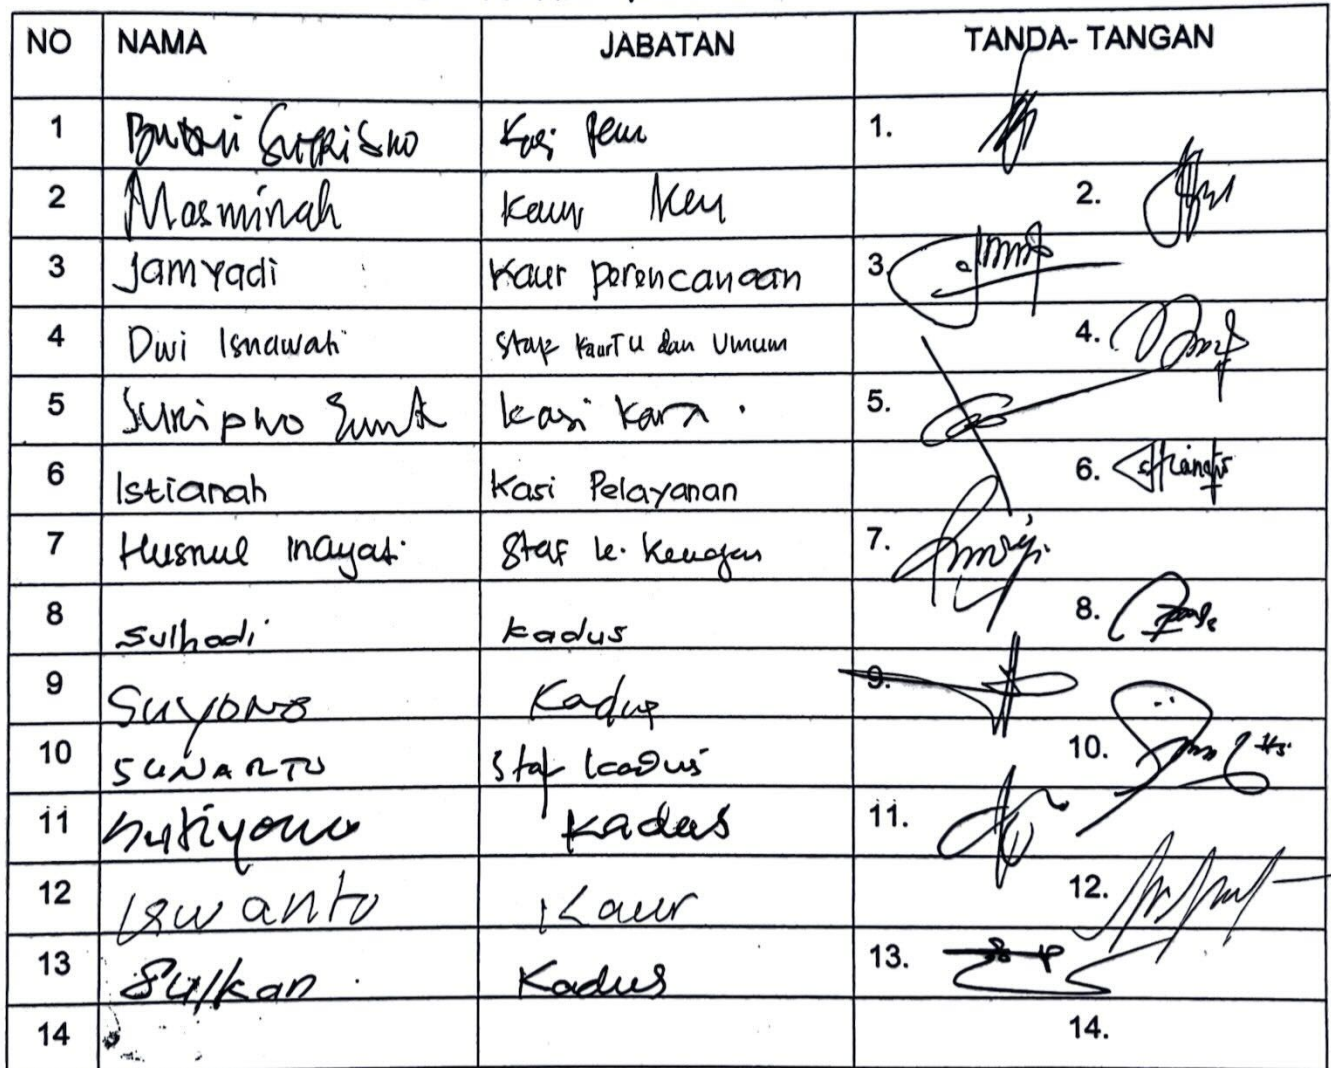 NO NAMA JABATAN TANDA- TANGAN
1 Sutrisno Kasi Pem 1.
2 Masminah Kaur Keu 2.
3 Jamyadi Kaur perencanaan 3.
4 Dwi Isnawati Staf Kaur TU dan Umum 4.
5 5.
6 Istianah Kasi Pelayanan 6.
7 Husnul inayati Staf 7.
8 Sulhadi kadus 8.
9 SUYONO Kadus 9.
10 SUNARTO Staf kadus 10.
11 Kadus 11.
12 Iswanto Kaur 12.
13 Sulkan Kadus 13.
14 14.